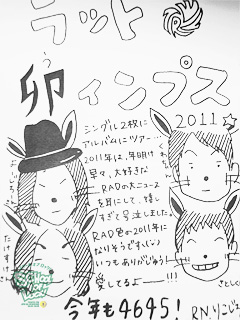 ラット
う
卯ィンプス
2011☆
シングル2枚に
アルバムにツアー…
2011年は、年明け
早々、大好きな
RADの大ニュース
を耳にして、嬉し
すぎて号泣しました。
RAD色の2011年に
なりそうです(い)
いつもありがじゅう!
愛してるよーー!!!
よーじろーさん
くわちゃん
たけすけさん
さとしくん
今年も4645!
RN.りこじえ